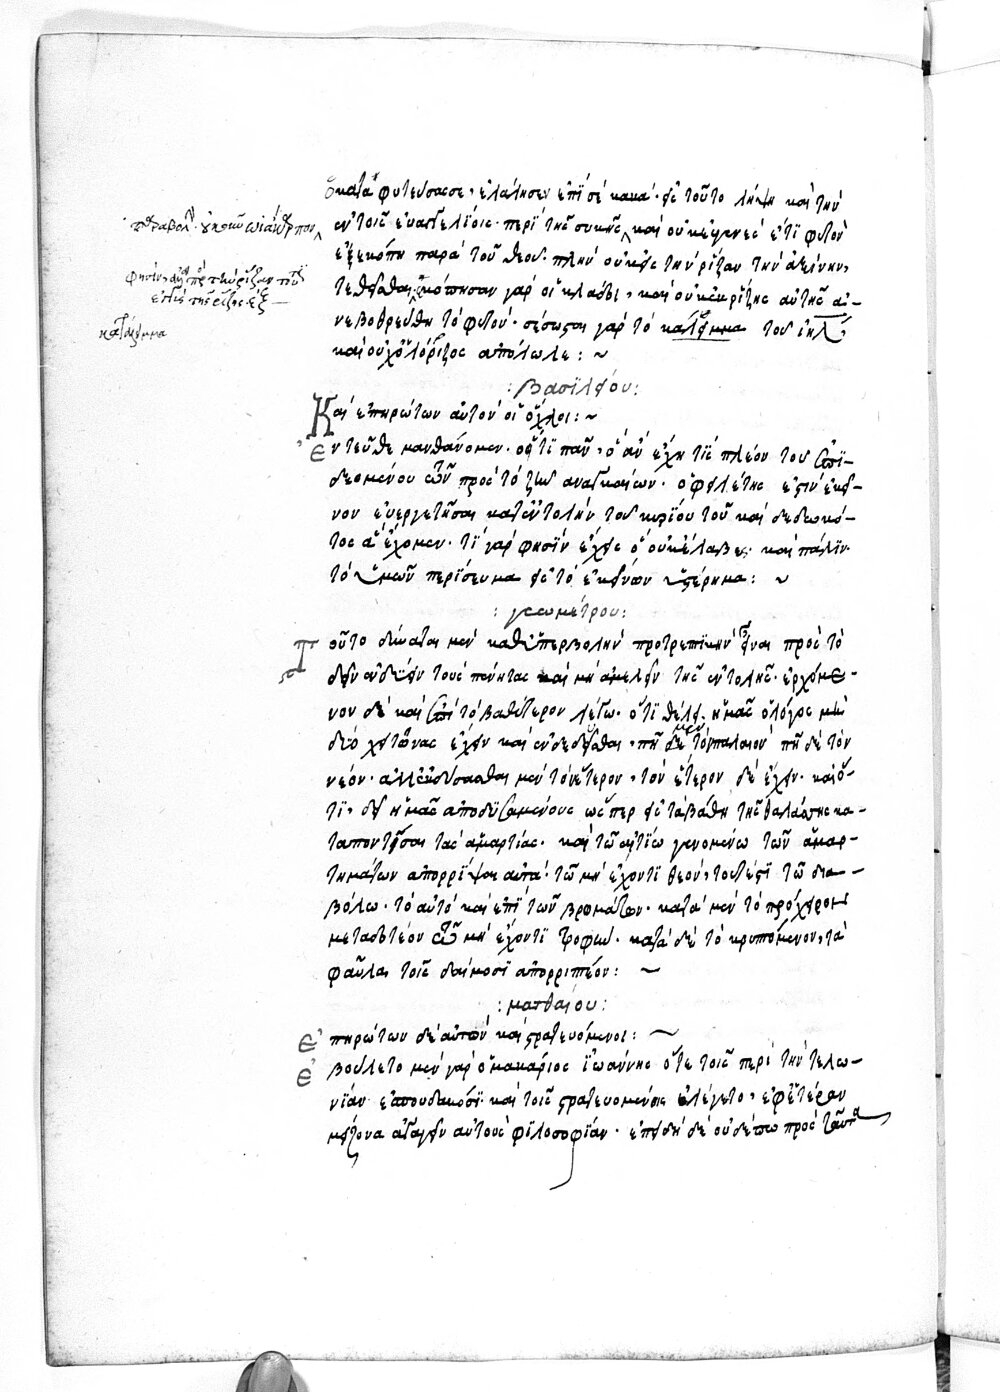 ὁ καταφυτεύσας σε, ἐλάλησεν ἐπὶ σὲ κακά· εἰς τοῦτο λήψη καὶ τὴν
ἐν τοῖς εὐαγγελίοις περὶ τῆς συκῆς καὶ οὐκ ἐγένες ἔτι φυτὸν
ἐξεκόπη παρὰ τοῦ θεοῦ· πλὴν οὐκ εἰς τὴν ῥίζαν τὴν ἀξίνην,
τεθεῖσθαι ἐκόπησαν γὰρ οἱ κλάδοι, καὶ οὐκ ἐκ ρίζης αὐτῆς ἀ-
νεβοθρεύθη τὸ φυτόν· σέσωσται γὰρ τὸ κατάλειμμα τοῦ ἰηλ,
καὶ οὐχ ὁλόριζος ἀπόλωλε: ~
παραβολὴν
φησὶν, τὴν ῥίζαν
τῆς ῥίζης
κατάλειμμα
: βασιλείου:
Καὶ ἐπηρώτων αὐτὸν οἱ ὄχλοι: ~
Ἐντεῦθε μανθάνομεν· ὅτι πᾶν, ὃ ἂν ἔχη τις πλέον τοῦ ἐπι-
δεομένου ὧν πρὸς τὸ ζῆν ἀναγκαίων· ὀφειλέτης ἐστὶν ἐκεῖ-
νον εὐεργετῆσαι κατ' ἐντολὴν τοῦ κυρίου τοῦ καὶ δεδωκό-
τος ἃ ἔχομεν· τί γάρ φησιν ἔχεις ὃ οὐκ ἔλαβες· καὶ πάλιν
τὸ ὑμῶν περίσευμα εἰς τὸ ἐκείνων ὑστέρημα: ~
: γεωμέτρου:
Τοῦτο δύναται μὲν καθ' ὑπερβολὴν προτρεπτικὴν εἶναι πρὸς τὸ
δεῖν ἐνδιδεῖν τοὺς πένητας καὶ μὴ ἀμελεῖν τῆς ἐντολῆς· ἐρχόμε-
νον δὲ καὶ ἐπὶ τὸ βαθύτερον λέγω· ὅτι θέλει ἡμᾶς ὁ λόγος μὴ
δύο χιτῶνας ἔχειν καὶ ἐνδεδύσθαι, πῆ μὲν τὸν παλαιὸν πῆ δὲ τὸν
νέον· ἀλλ' ἐκδύσασθαι μὲν τὸν ἕτερον, τὸν ἕτερον δὲ ἔχειν· καὶ ὅ-
τι, δεῖ ἡμᾶς ἀποδυσαμένους ὥσπερ εἰς τὰ βάθη τῆς θαλάσσης κα-
ταποντῖσαι τὰς ἁμαρτίας· καὶ τῷ αἰτίῳ γενομένῳ τῶν ἁμαρ-
τημάτων ἀπορρίψαι αὐτά· τῷ μὴ ἔχοντι θεόν, τουτέστι τῷ δια-
βόλῳ· τὸ αὐτὸ καὶ ἐπὶ τῶν βρωμάτων· κατὰ μὲν τὸ πρόχειρον
μεταδοτέον τῷ μὴ ἔχοντι τροφῶν· κατὰ δὲ τὸ κρυπτόμενον, τὰ
φαῦλα τοῖς δαίμοσι ἀπορριπτέον: ~
: ματθαίου:
Ἐπηρώτων δὲ αὐτὸν καὶ στρατευόμενοι: ~
Ἐβούλετο μὲν γὰρ ὁ μακάριος ἰωάννης ὅτε τοῖς περὶ τὴν τελω-
νίαν ἐσπουδακόσι καὶ τοῖς στρατευομένοις ἐλέγετο, ἐφ' ἑτέραν
μείζονα ἀγαγεῖν αὐτοὺς φιλοσοφίαν· ἐπειδὴ δὲ οὐδέπω πρὸς ταῦτα